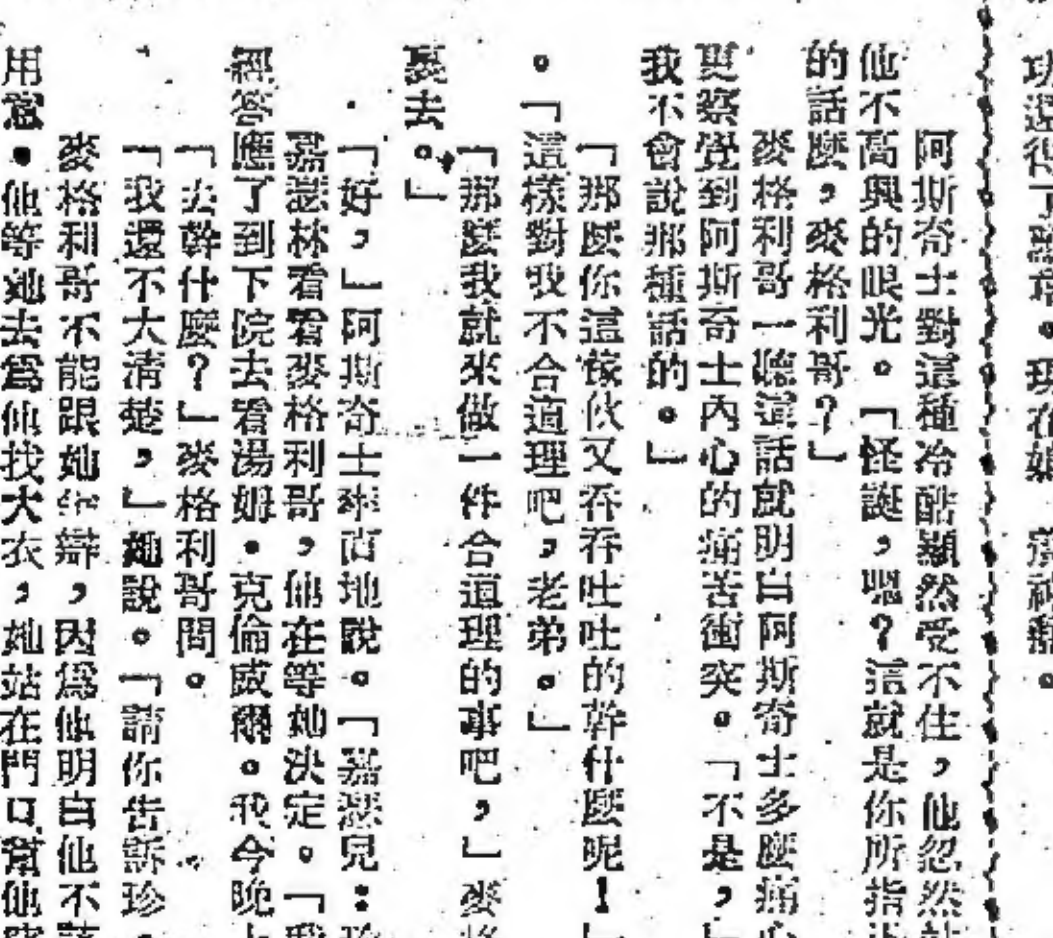 功還得了勳章。現在媽
阿斯奇士對這種冷酷顯然受不住，他忽然
他不高興的眼光。「怪誕，嗯？這就是你所指
的話麼，麥格利哥？」
麥格利哥一聽這話就明白阿斯奇士多麼痛心
更察覺到阿斯奇士內心的痛苦衝突。「不是，」
我不會說那種話的。」
「那麼你這傢伙又吞吞吐吐的幹什麼呢！
這樣對我不合道理吧，老弟。」
。「那麼我就來做一件合道理的事吧，」麥格
裏去。」
「好，」阿斯奇士率直地說。「嘉瑟兒：
嘉瑟林看看麥格利哥，他在等她決定。「我
經答應了到下院去看湯姆・克倫威爾。我今晚
「去幹什麼？」麥格利哥問。
「我還不大清楚，」她說。「請你告訴珍，
麥格利哥不能跟她爭辯，因爲他明白他不該
用意。他等她去爲他找大衣，她站在門口幫他